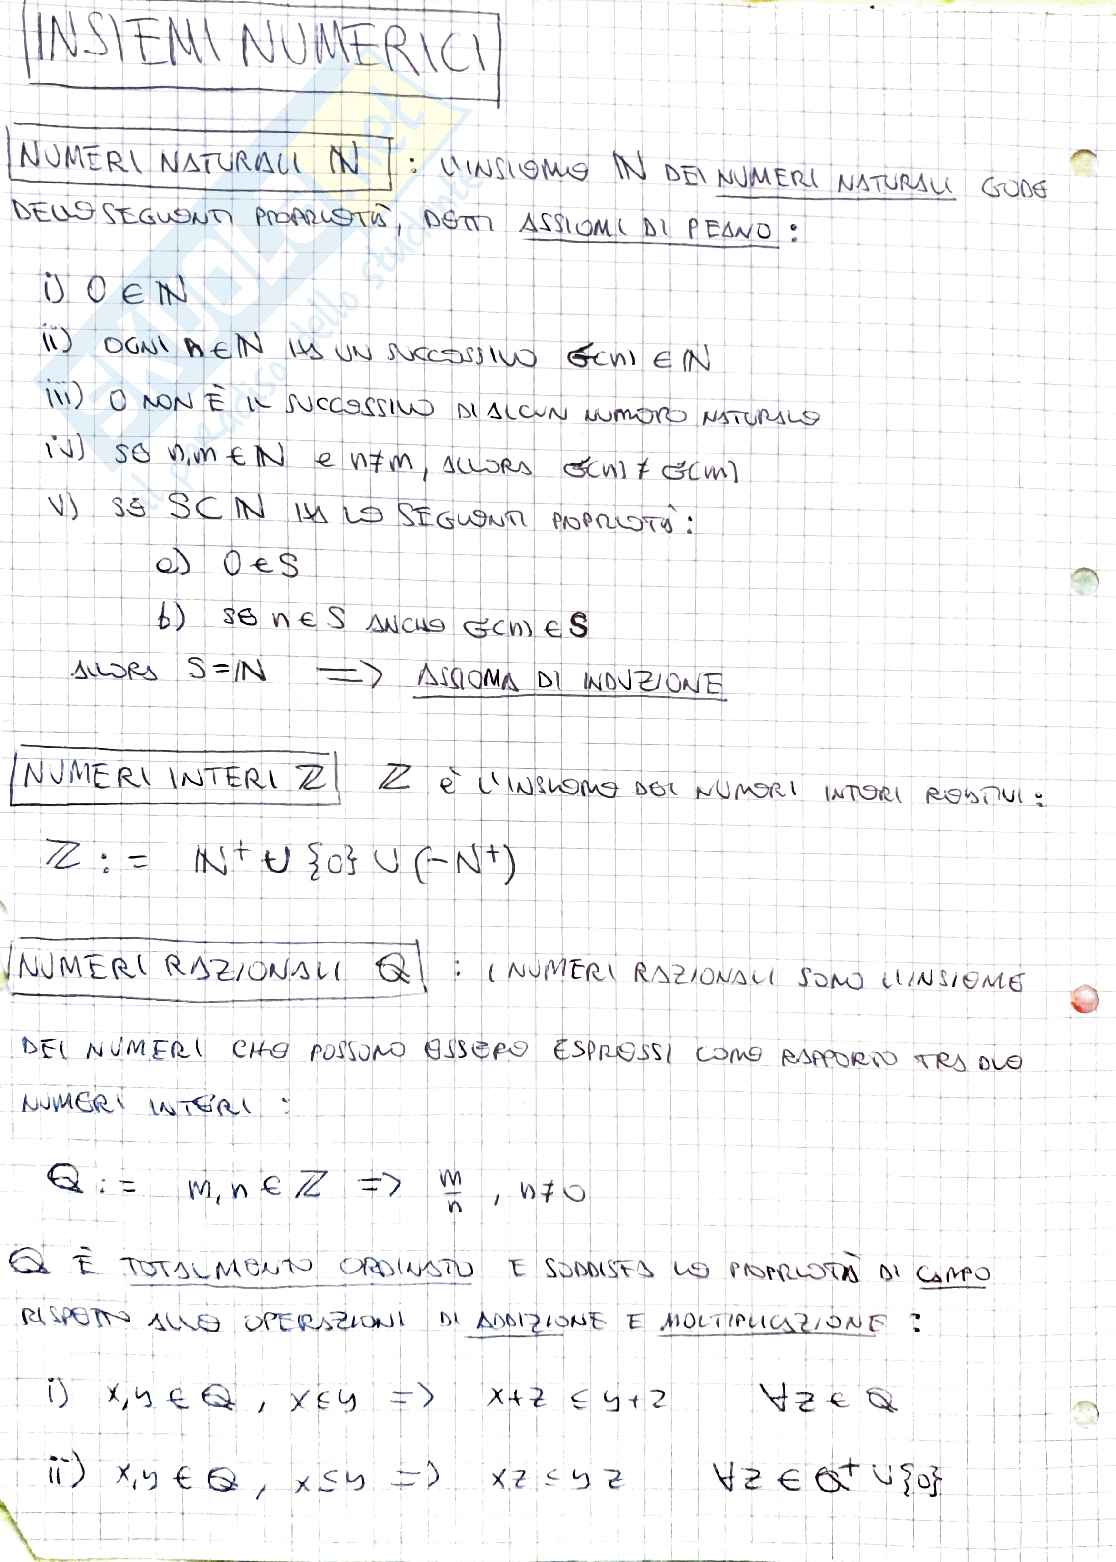 INSIEMI NUMERICI
NUMERI NATURALI ℕ : L'INSIEME ℕ DEI NUMERI NATURALI GODE
DELLE SEGUENTI PROPRIETÀ, DETTI ASSIOMI DI PEANO :
i) 0 ∈ ℕ
ii) OGNI n ∈ ℕ HA UN SUCCESSIVO σ(n) ∈ ℕ
iii) 0 NON È IL SUCCESSIVO DI ALCUN NUMERO NATURALE
iv) SE n,m ∈ ℕ e n≠m, ALLORA σ(n) ≠ σ(m)
v) SE S⊂ℕ HA LE SEGUENTI PROPRIETÀ:
a) 0 ∈ S
b) SE n ∈ S ANCHE σ(n) ∈ S
ALLORA S=ℕ => ASSIOMA DI INDUZIONE
NUMERI INTERI ℤ ℤ è L'INSIEME DEI NUMERI INTERI RELATIVI :
ℤ := ℕ⁺ ∪ {0} ∪ (-N⁺)
NUMERI RAZIONALI ℚ : I NUMERI RAZIONALI SONO L'INSIEME
DEI NUMERI CHE POSSONO ESSERE ESPRESSI COME RAPPORTO TRA DUE
NUMERI INTERI :
ℚ := m,n ∈ ℤ => m/n , n≠0
ℚ È TOTALMENTE ORDINATO E SODDISFA LE PROPRIETÀ DI CAMPO
RISPETTO ALLE OPERAZIONI DI ADDIZIONE E MOLTIPLICAZIONE :
i) x,y ∈ ℚ , x≤y => x+z ≤ y+z ∀z ∈ ℚ
ii) x,y ∈ ℚ , x≤y => xz ≤ yz ∀z ∈ ℚ⁺ ∪ {0}